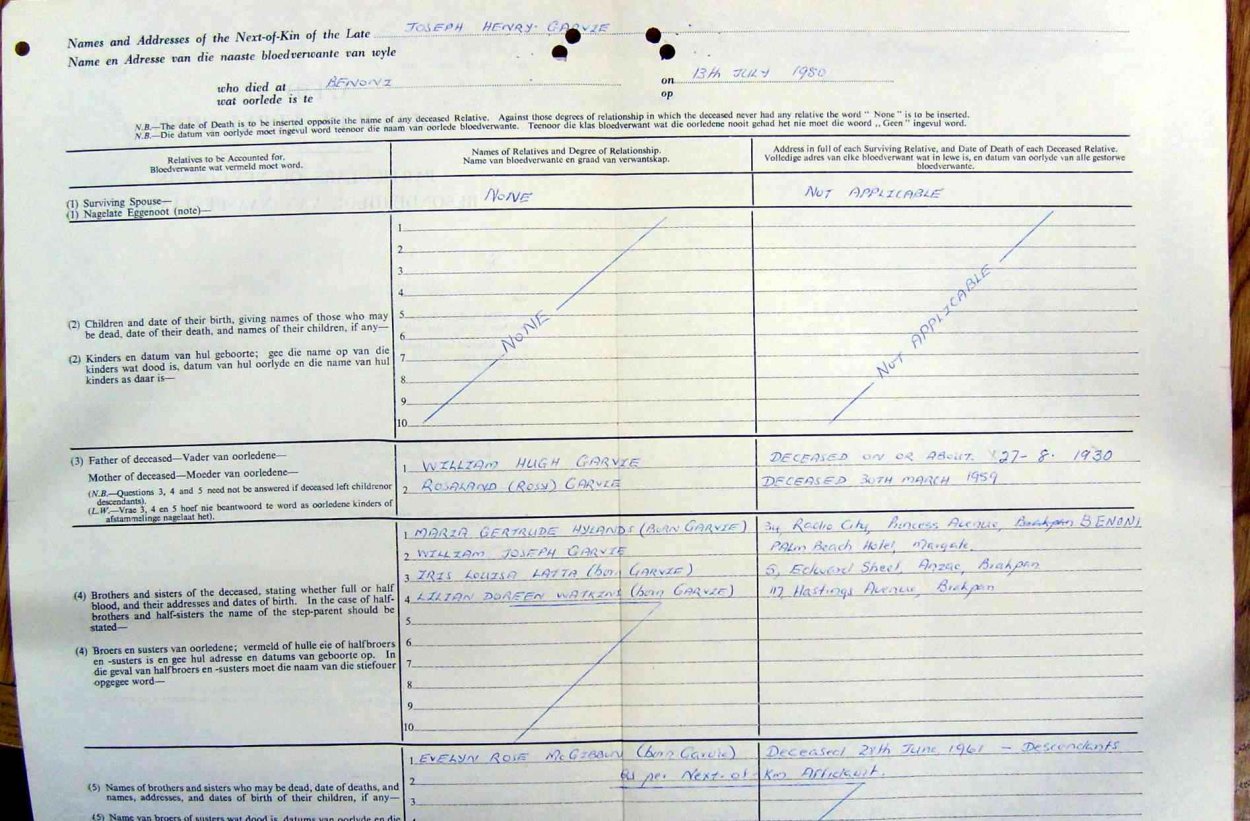 Names and Addresses of the Next-of-Kin of the Late JOSEPH HENRY GARVIE
Name en Adresse van die naaste bloedverwante van wyle
who died at BENONI on 13th JULY 1980
wat oorlede is te op
N.B.—The date of Death is to be inserted opposite the name of any deceased Relative. Against those degrees of relationship in which the deceased never had any relative the word "None" is to be inserted.
N.B.—Die datum van oorlyde moet ingevul word teenoor die naam van oorlede bloedverwante. Teenoor die klas bloedverwant wat die oorledene nooit gehad het nie moet die woord „Geen" ingevul word.
Relatives to be Accounted for. Names of Relatives and Degree of Relationship. Address in full of each Surviving Relative, and Date of Death of each Deceased Relative.
Bloedverwante wat vermeld moet word. Name van bloedverwante en graad van verwantskap. Volledige adres van elke bloedverwant wat in lewe is, en datum van oorlyde van alle gestorwe bloedverwante.
(1) Surviving Spouse— NONE NOT APPLICABLE
(1) Nagelate Eggenoot (note)—
1
2
3
4
5
6
7
8
9
10
NONE NOT APPLICABLE
(2) Children and date of their birth, giving names of those who may
be dead, date of their death, and names of their children, if any—
(2) Kinders en datum van hul geboorte; gee die name op van die
kinders wat dood is, datum van hul oorlyde en die name van hul
kinders as daar is—
(3) Father of deceased—Vader van oorledene— 1 WILLIAM HUGH GARVIE DECEASED ON OR ABOUT 27-8-1930
Mother of deceased—Moeder van oorledene— 2 ROSALAND (ROSY) GARVIE DECEASED 30TH MARCH 1959
(N.B.—Questions 3, 4 and 5 need not be answered if deceased left childrenor
descendants).
(L.W.—Vrae 3, 4 en 5 hoef nie beantwoord te word as oorledene kinders of
afstammelinge nagelaat het).
1 MARIA GERTRUDE HYLANDS (BORN GARVIE) 34, Radio City, Princess Avenue, BENONI
2 WILLIAM JOSEPH GARVIE PALM Beach Hotel, Margate
3 IRIS LOUISA LATTA (born GARVIE) 5, Edward Street, Anzac, Brakpan
4 LILIAN DOREEN WATKINS (born GARVIE) 117 Hastings Avenue, Brakpan
5
6
7
8
9
10
(4) Brothers and sisters of the deceased, stating whether full or half
blood, and their addresses and dates of birth. In the case of half-
brothers and half-sisters the name of the step-parent should be
stated—
(4) Broers en susters van oorledene; vermeld of hulle eie of halfbroers
en -susters is en gee hul adresse en datums van geboorte op. In
die geval van halfbroers en -susters moet die naam van die stiefouer
opgegee word—
1 EVELYN ROSE McGIBBON (born Garvie) Deceased 28th June 1961 - Descendants
2 as per Next-of-Kin Affidavit.
3
(5) Names of brothers and sisters who may be dead, date of deaths, and
names, addresses, and dates of birth of their children, if any—
(5) Name van broers of susters wat dood is, datums van oorlyde en die